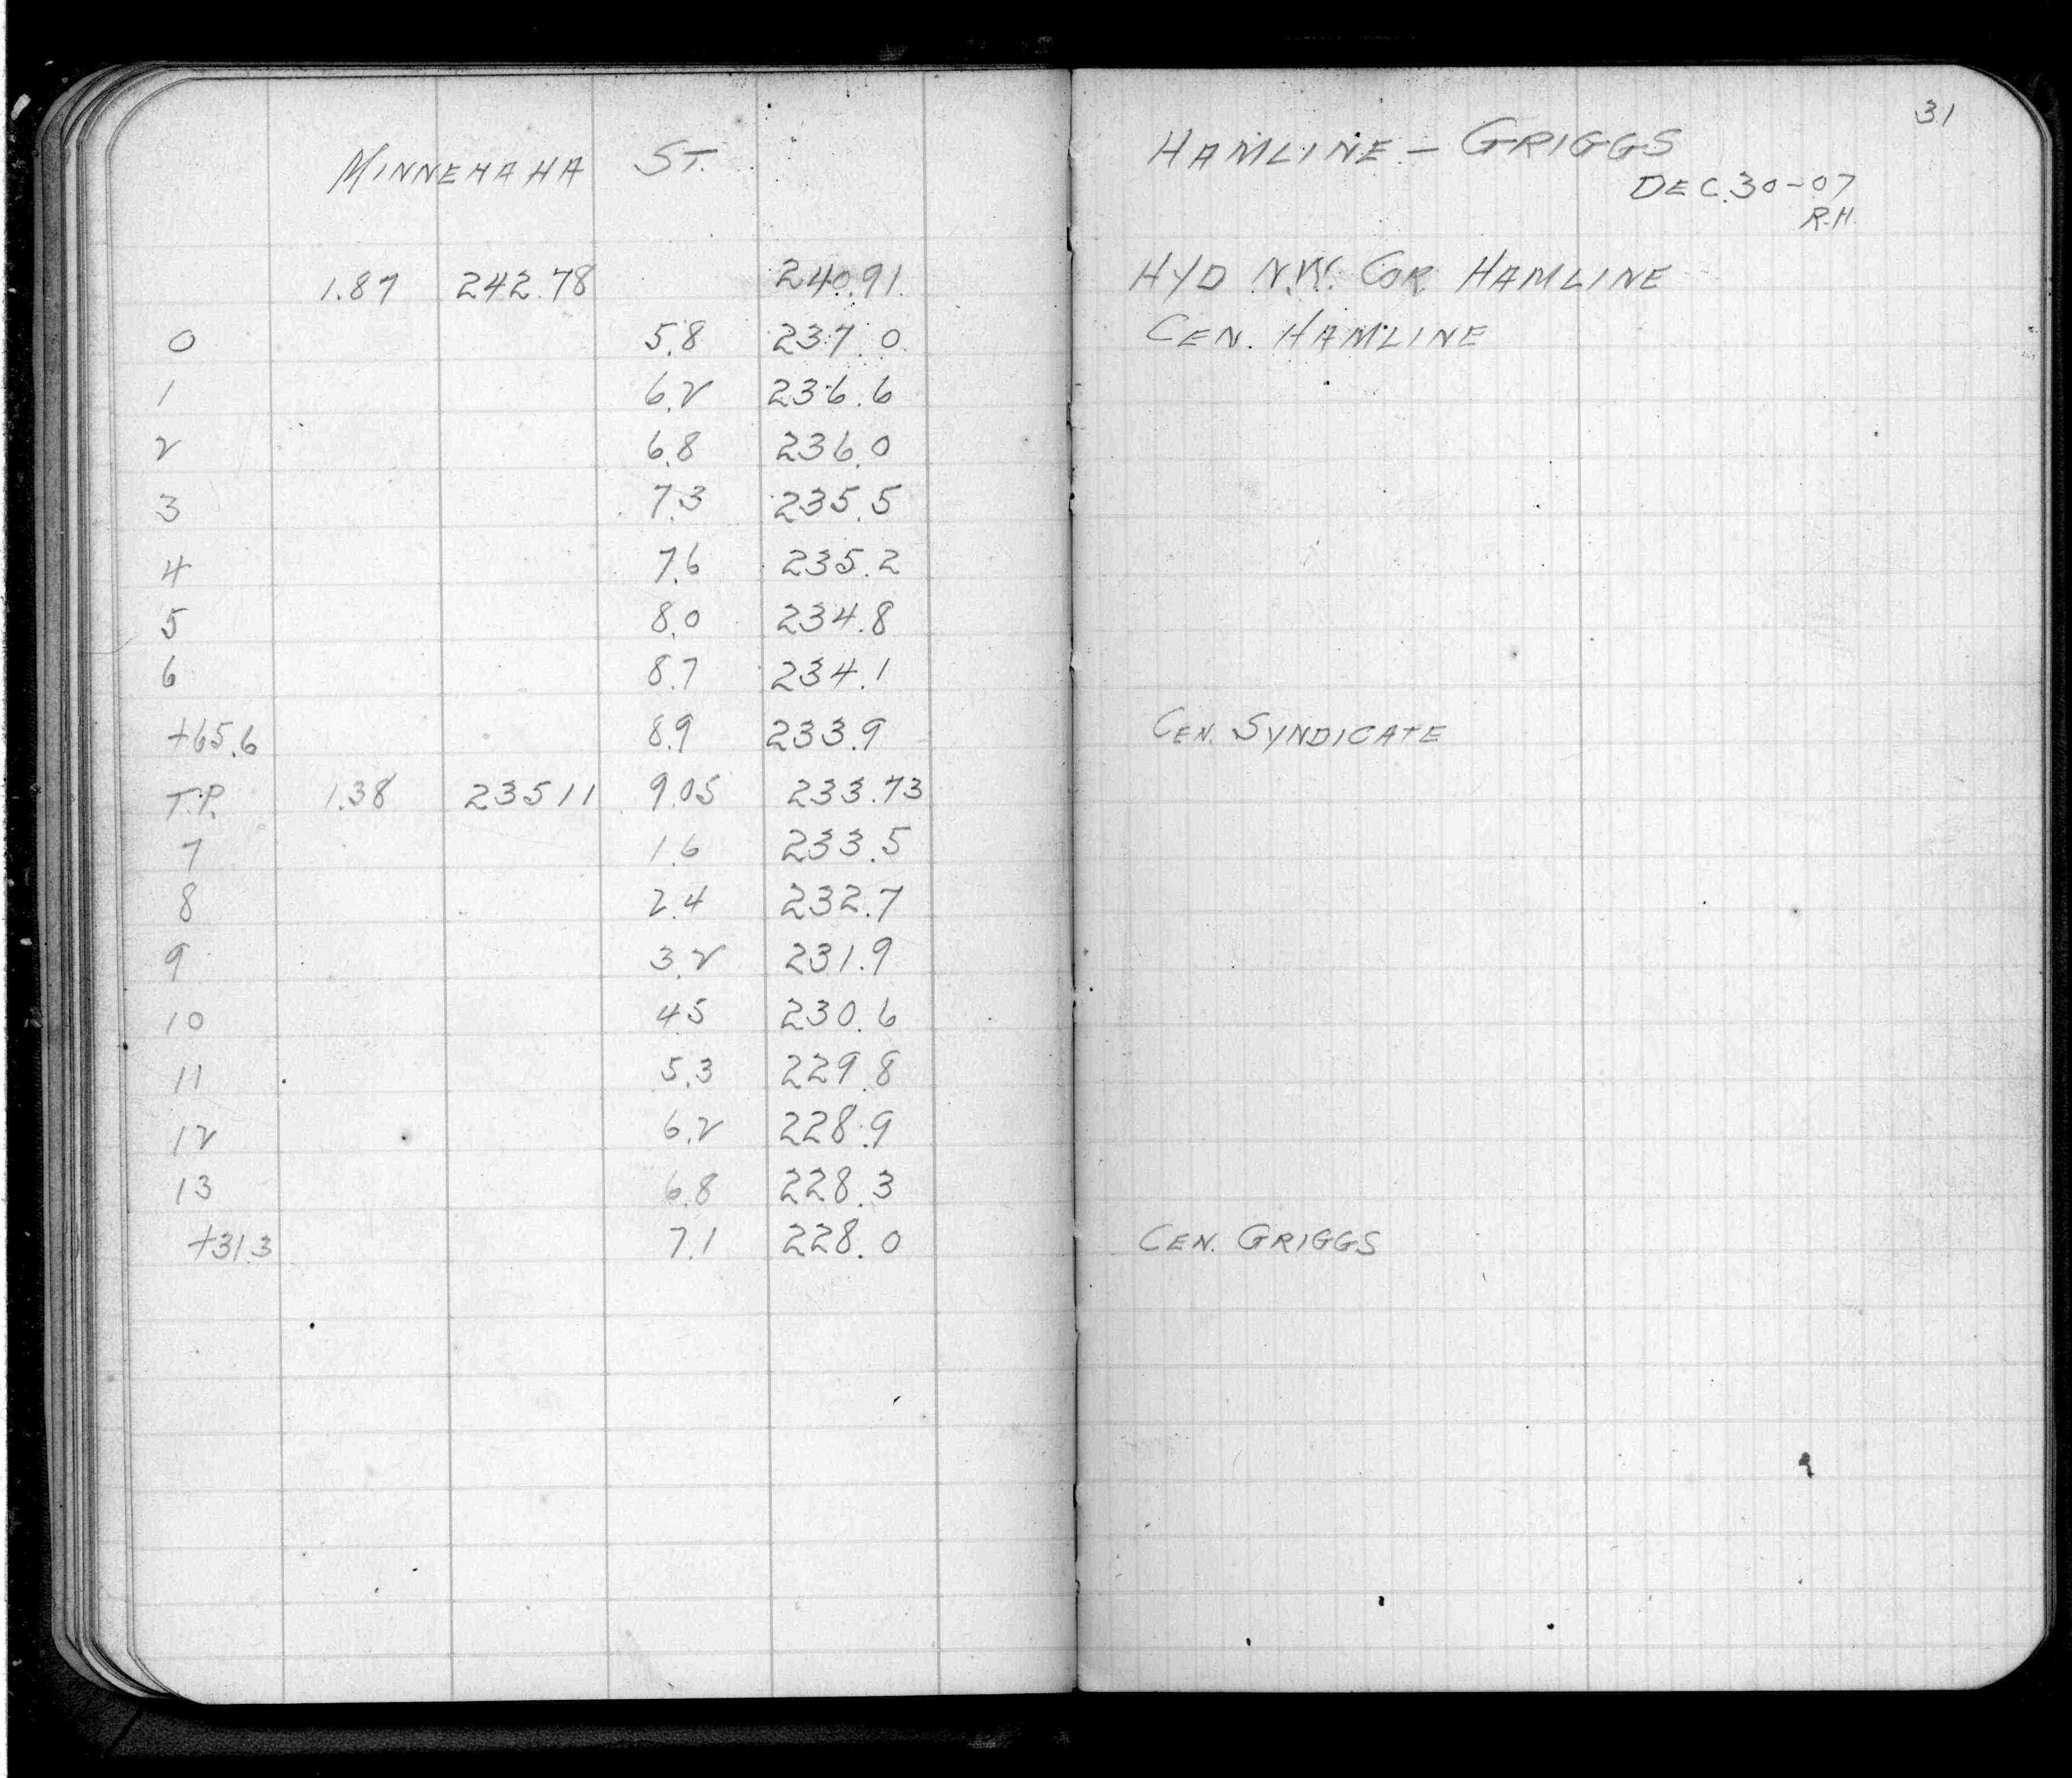 MINNEHAHA ST.
1.87 242.78 240.91
0 5.8 237.0
1 6.2 236.6
2 6.8 236.0
3 7.3 235.5
4 7.6 235.2
5 8.0 234.8
6 8.7 234.1
+65.6 8.9 233.9
T.P. 1.38 235 11 9.05 233.73
7 1.6 233.5
8 2.4 232.7
9 3.2 231.9
10 4.5 230.6
11 5.3 229.8
12 6.2 228.9
13 6.8 228.3
+31.3 7.1 228.0
31
HAMLINE - GRIGGS
DEC. 30-07
R.H.
HYD N.W. COR HAMLINE
CEN. HAMLINE
CEN. SYNDICATE
CEN. GRIGGS